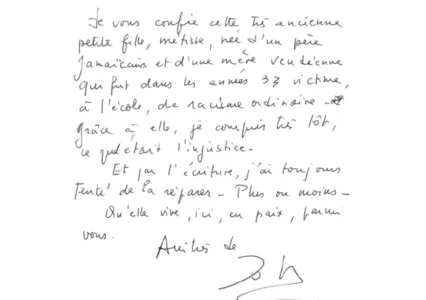 Je vous confie cette très ancienne
petite fille, métisse, née d'un père
Jamaïcain et d'une mère vendéenne
qui fut dans les années 33 victime,
à l'école, de racisme ordinaire -
grâce à elle, je compris très tôt,
ce qu'était l'injustice -
Et par l'écriture, j'ai toujours
tenté de la réparer - Plus ou moins -
Qu'elle vive, ici, en paix, parmi
vous.
de